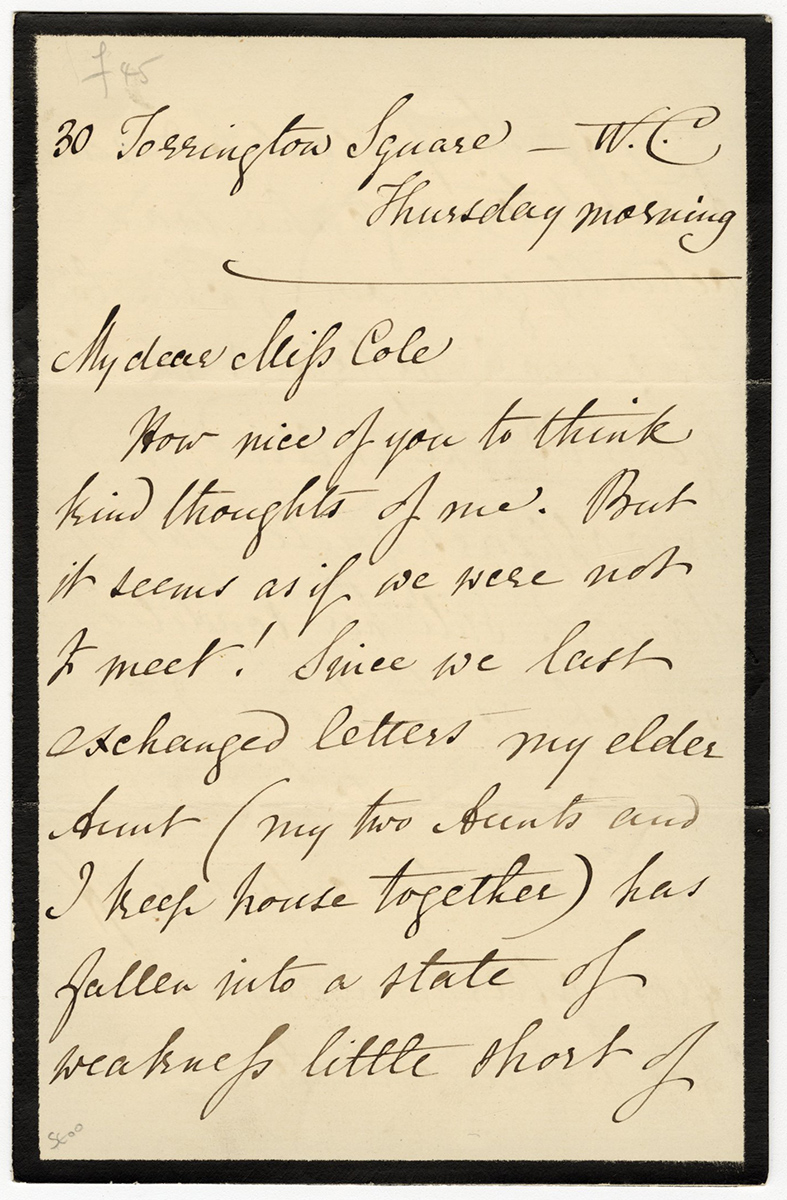 f 45
30 Torrington Square – W.C
Thursday morning
My dear Miss Cole
How nice of you to think
kind thoughts of me. But
it seems as if we were not
to meet! Since we last
exchanged letters my elder
Aunt (my two Aunts and
I keep house together) has
fallen into a state of
weakness little short of